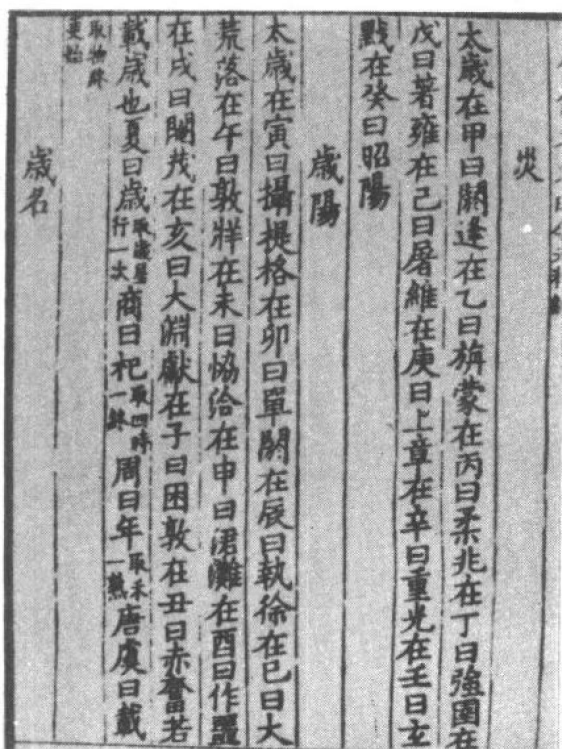 災
太歳在甲曰閼逢在乙曰旃蒙在丙曰柔兆在丁曰強圉在
戊曰著雍在己曰屠維在庚曰上章在辛曰重光在壬曰玄
黓在癸曰昭陽
歳陽
太歳在寅曰攝提格在卯曰單閼在辰曰執徐在巳曰大
荒落在午曰敦牂在未曰恊洽在申曰涒灘在酉曰作噩
在戌曰閹茂在亥曰大淵獻在子曰困敦在丑曰赤奮若
載歳也夏曰歳取歳星行一次商曰祀取四時一終周曰年取禾一熟唐虞曰載
取物終更始
歳名